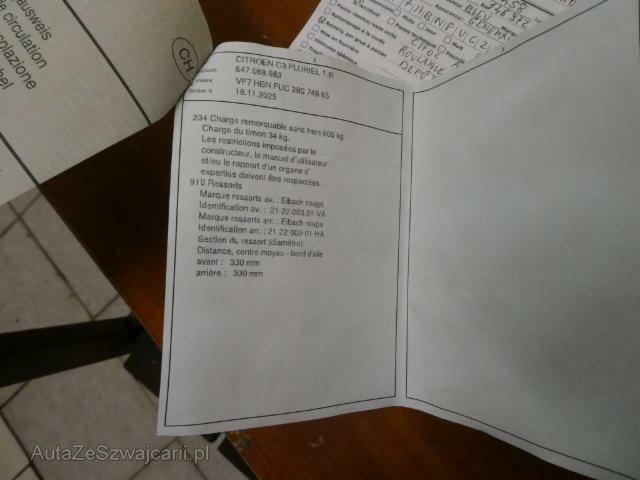 ausweis
de circulation
colazione
CH
CITROEN C3 PLURIEL 1.6
647.088.983
VF7 HBN FUC 280 746 65
Genève, le 18.11.2025
234 Charge remorquable sans frein 600 kg.
Charge du timon 34 kg.
Les restrictions imposées par le
constructeur, le manuel d'utilisateur
et/ou le rapport d'un organe d'
expertise doivent être respectées.
910 Ressorts
Marque ressorts av. : Eibach rouge
Identification av. : 21-22-003-01-VA
Marque ressorts arr. : Eibach rouge
Identification arr. : 21-22-003-01-HA
Section du ressort (diamètre):
Distance, centre moyeu - bord d'aile
avant : 330 mm
arrière : 330 mm
ROULABLE A
DEPÔT
AutaZeSzwajcarii.pl